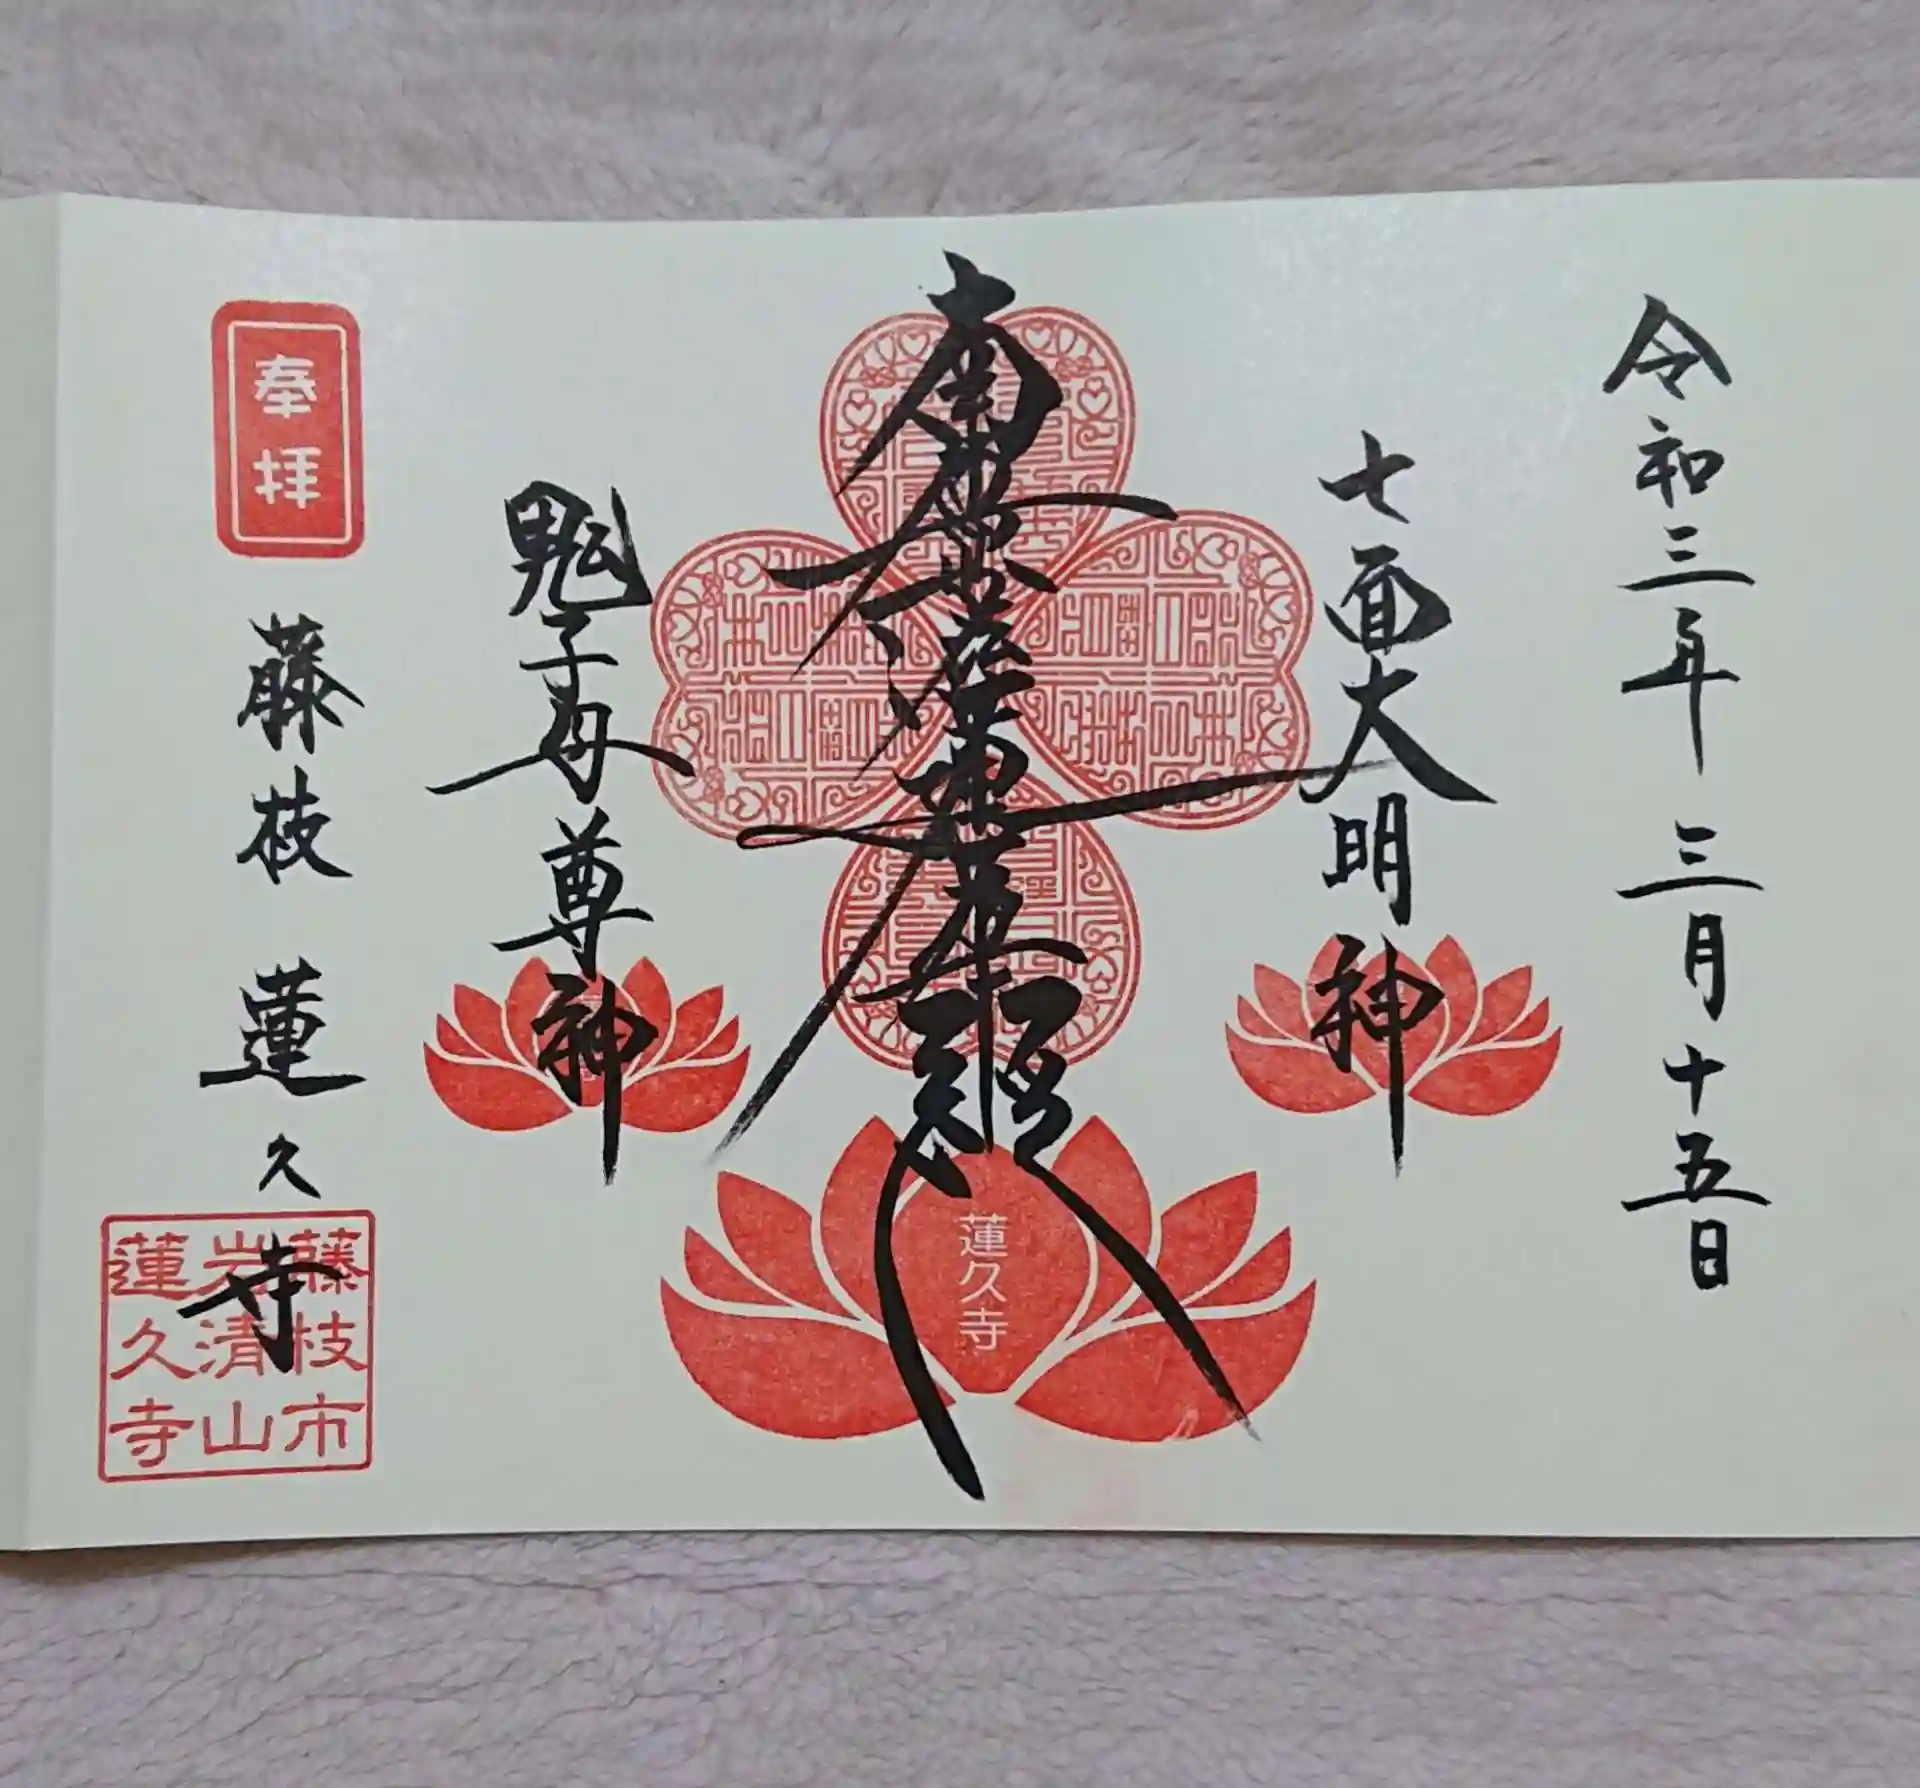 令和三年三月十五日
七面大明神
南無妙法蓮華経
蓮久寺
鬼子母尊神
奉拝
藤枝 蓮久寺
藤枝市
岩清山
蓮久寺